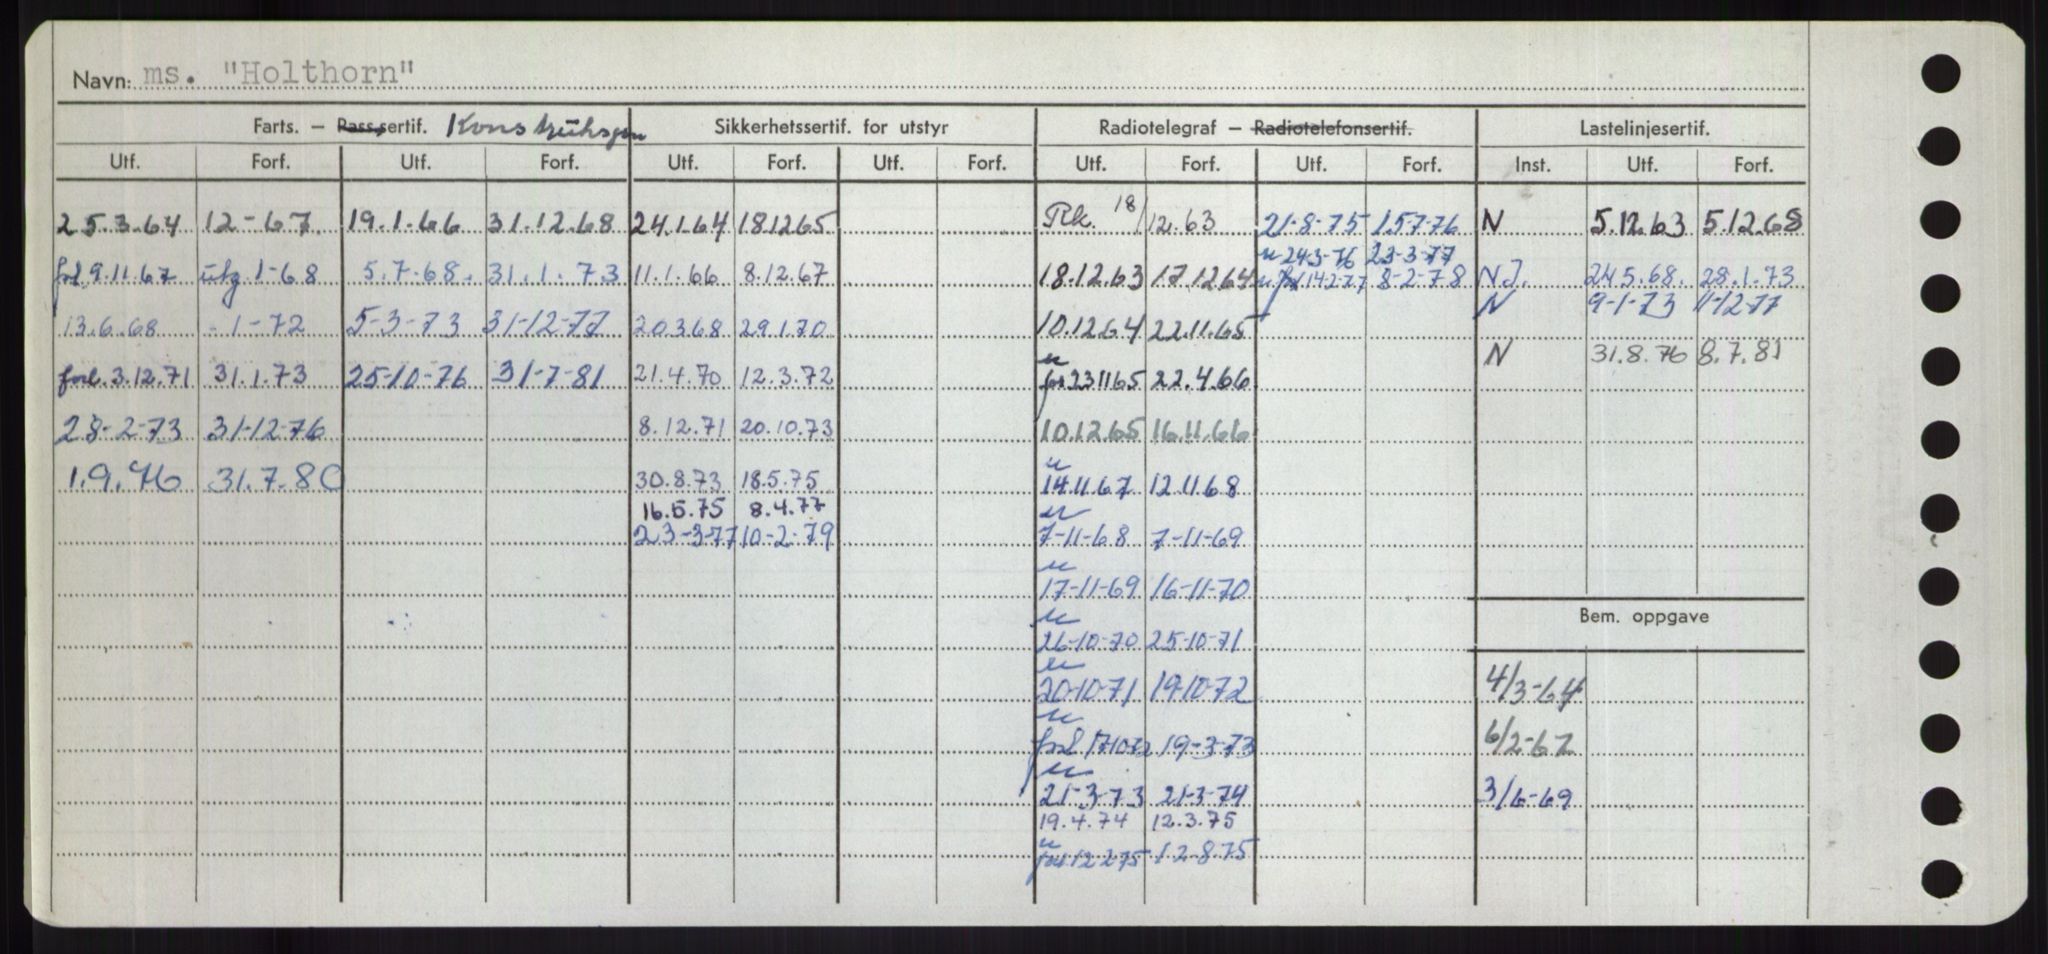 Navn: ms. "Holthorn"
Farts. – Pass.sertif. Konstruksjon Sikkerhetssertif. for utstyr Radiotelegraf – Radiotelefonsertif. Lastelinjesertif.
Utf. Forf. Utf. Forf. Utf. Forf. Utf. Forf. Utf. Forf. Utf. Forf. Inst. Utf. Forf.
25.3.64 12-67 19.1.66 31.12.68 24.1.64 18.12.65 Rk. 18/12.63 21-8-75 15.7-76 N 5.12.63 5.12.68
u 24-3-76 23-3-77
forl 9.11.67 utg 1-68 5.7-68. 31.1.73 11.1.66 8.12.67 18.12.63 17.12.64 u. forl 14-2-77 8-2-78 N.I. 24.5.68. 28.1.73
N 9-1-73 11-12-77
13.6.68 -1-72 5-3-73 31-12-77 20.3.68 29.1.70 10.12.64 22.11.65
N 31.8.76 8.7.81
u
forl. 3.12.71 31.1.73 25-10-76 31-7-81 21.4.70 12.3.72 for 23.11.65 22.4.66
28-2-73 31-12-76 8.12.71 20.10.73 10.12.65 16.11.66
u
1.9.76 31.7.80 30.8.73 18.5.75 14.11.67 12.11.68
16.5.75 8.4.77 u
23-3-77 10-2-79 7-11-68 7-11-69
u
17-11-69 16-11-70
Bem. oppgave
u
26-10-70 25-10-71
u
20-10-71 19-10-72 4/3-64
u
forl 17-10-72 19-3-73 6/2-67
u
21-3-73 21-3-74 3/6-69
19.4.74 12.3.75
u
forl 12.2.75 12.8.75